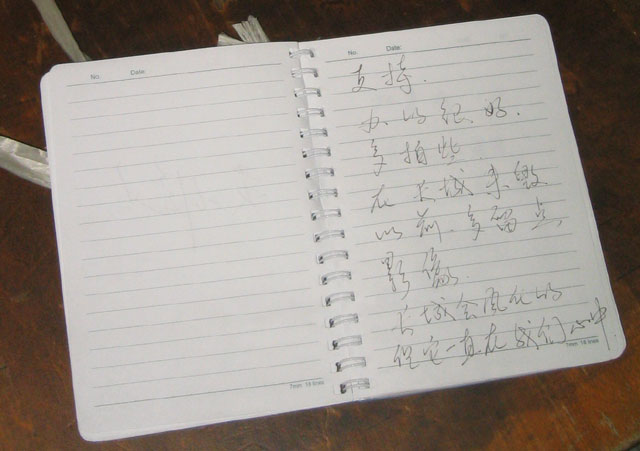 No. Date:
No. Date:
支持.
办的很好.
多拍些.
在长城未毁
以前.多留点
影像.
长城会风化的
但它一直在我们心中
7mm 18 lines
7mm 18 lines